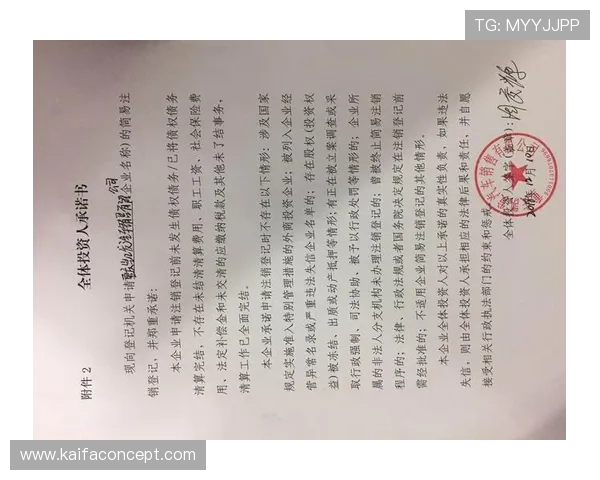 TG: MYYJJPP
附件2
全体投资人承诺书
现向登记机关申请 公司(企业名称)的简易注
销登记,并郑重承诺:
本企业申请注销登记前未发生债权债务/已将债权债务
清算完结,不存在未结清清算费用、职工工资、社会保险费
用、法定补偿金和未交清的应缴纳税款及其他未了结事务,
清算工作已全面完结。
本企业承诺申请注销登记时不存在以下情形:涉及国家
规定实施准入特别管理措施的外商投资企业;被列入企业经
营异常名录或严重违法失信企业名单的;存在股权(投资权
益)被冻结、出质或动产抵押等情形;有正在被立案调查或采
取行政强制、司法协助、被予以行政处罚等情形的;企业所
属的非法人分支机构未办理注销登记的;曾被终止简易注销
程序的;法律、行政法规或者国务院决定规定在注销登记前
需经批准的;不适用企业简易注销登记的其他情形。
本企业全体投资人对以上承诺的真实性负责,如果违法
失信,则由全体投资人承担相应的法律后果和责任,并自愿
接受相关行政执法部门的约束和惩戒。
全体投资人签字(盖章):
www.kaifaconcept.com